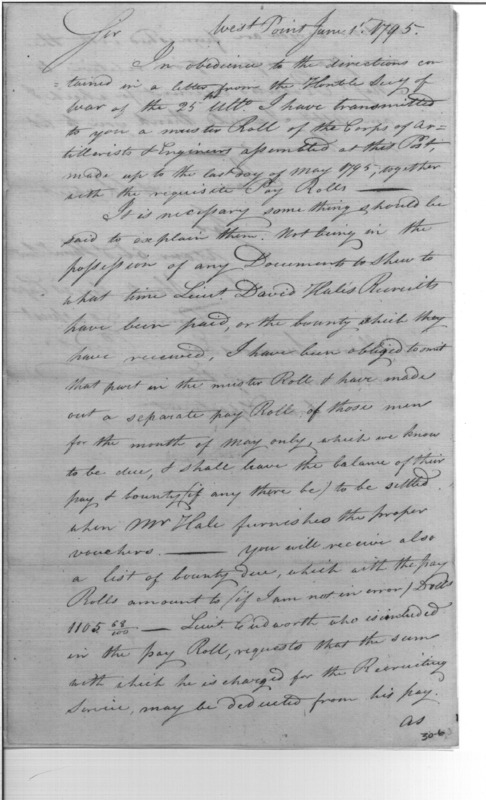 Sir West Point June 1st 1795.
In obedience to the directions con
=tained in a letter from the Honble Secy of
war of the 25th Ullto. I have transmitted
to you a muster Roll of the Corps of Ar=
tillerists & Engineers assembled at this Post,
made up to the last day of May 1795, together
with the requisite Pay Rolls —
It is necessary something should be
said to explain them. Not being in the
possession of any Documents to shew to
what time Lieut. David Hales Recruits
have been paid, or the bounty which they
have received, I have been obliged to omit
that part in the muster Roll & have made
out a separate pay Roll of those men
for the month of May only, which we know
to be due, & shall leave the balance of their
pay & bounty (if any there be) to be settled
when Mr Hale furnishes the proper
vouchers. — You will receive also
a list of bounty due, which with the pay
Rolls amount to (if I am not in error) Dolls
1105 68/100 — Lieut. who is included
in the pay Roll, requests that the sum
with which he is charged for the Recruiting
Service, may be deducted from his pay.
as